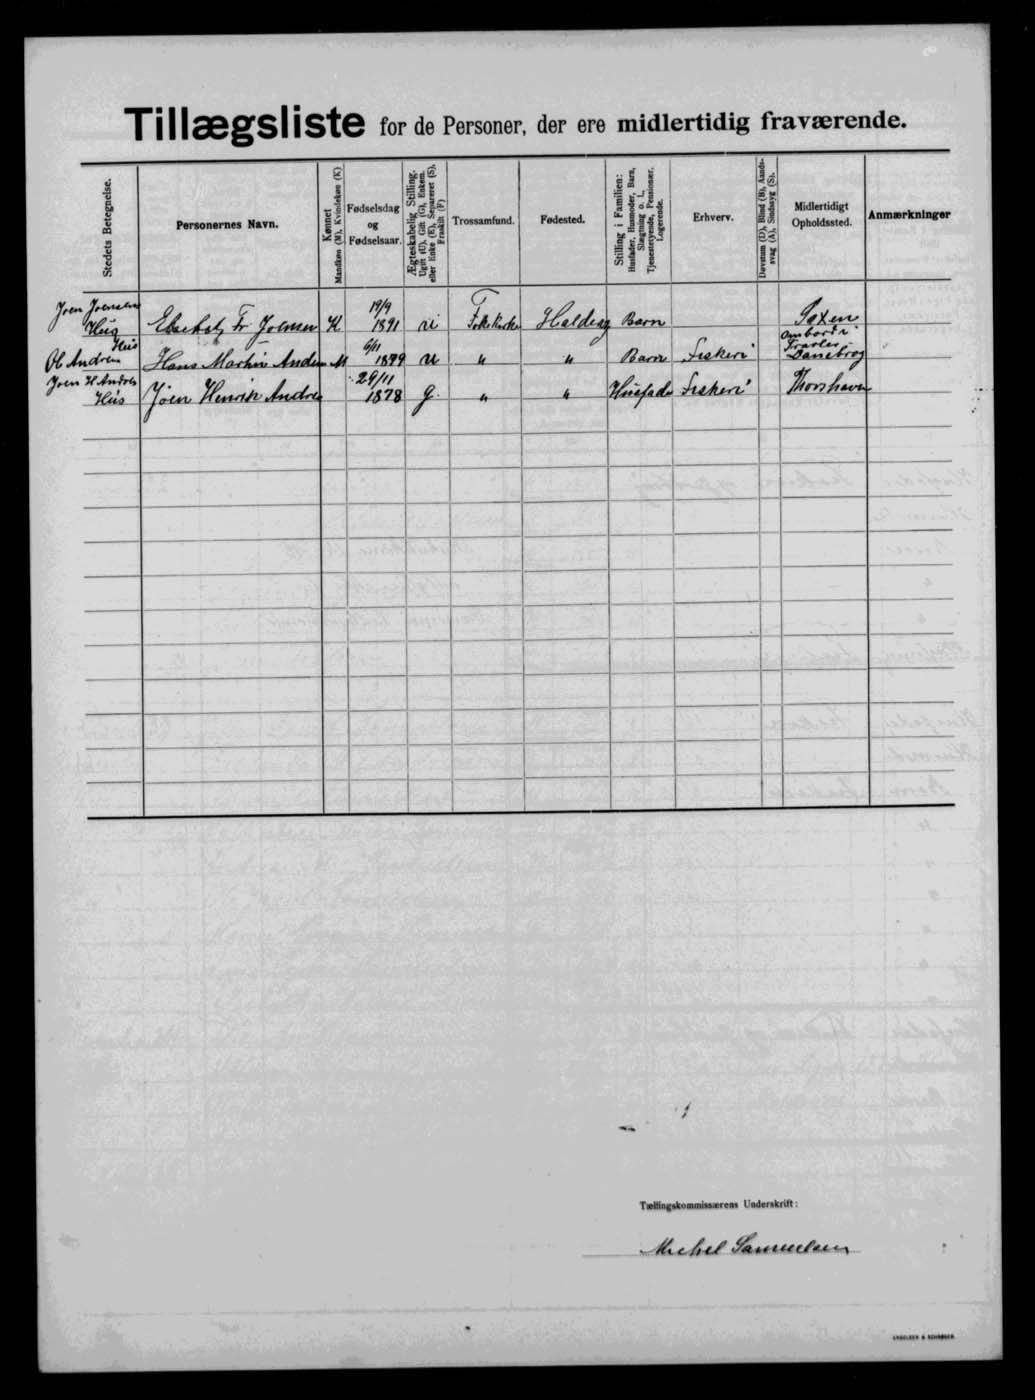 Tillægsliste for de Personer, der ere midlertidig fraværende.
Stedets Betegnelse.
Personernes Navn.
Kønnet
Mandkøn (M). Kvindekøn (K)
Fødselsdag
og
Fødselsaar.
Ægteskabelig Stilling.
Ugift (U), Gift (G), Enkem.
eller Enke (E), Separeret (S),
Fraskilt (F)
Trossamfund.
Fødested.
Stilling i Familien:
Husfader, Husmoder, Barn,
Slægtning o. l.,
Tjenestetyende, Pensionær,
Logerende.
Erhverv.
Døvstum (D), Blind (B), Aands-
svag (A), Sindssyg (S).
Midlertidigt
Opholdssted.
Anmærkninger
Joen Joensens
Hus Fr Joensen K 19/9 1891 U Folkekirke Barn Saxen
Hus
Ol Andreas Hans Martin M 6/11 1879 U " " Barn Fiskeri ombord i Danebrog
Joen H Andreas
Hus Joen Henrik Andreas 29/11 1878 G. " " Husfader Fiskeri Thorshavn
Tællingskommissærens Underskrift:
Michel Samuelsen
ENGELSEN & SCHRØDER